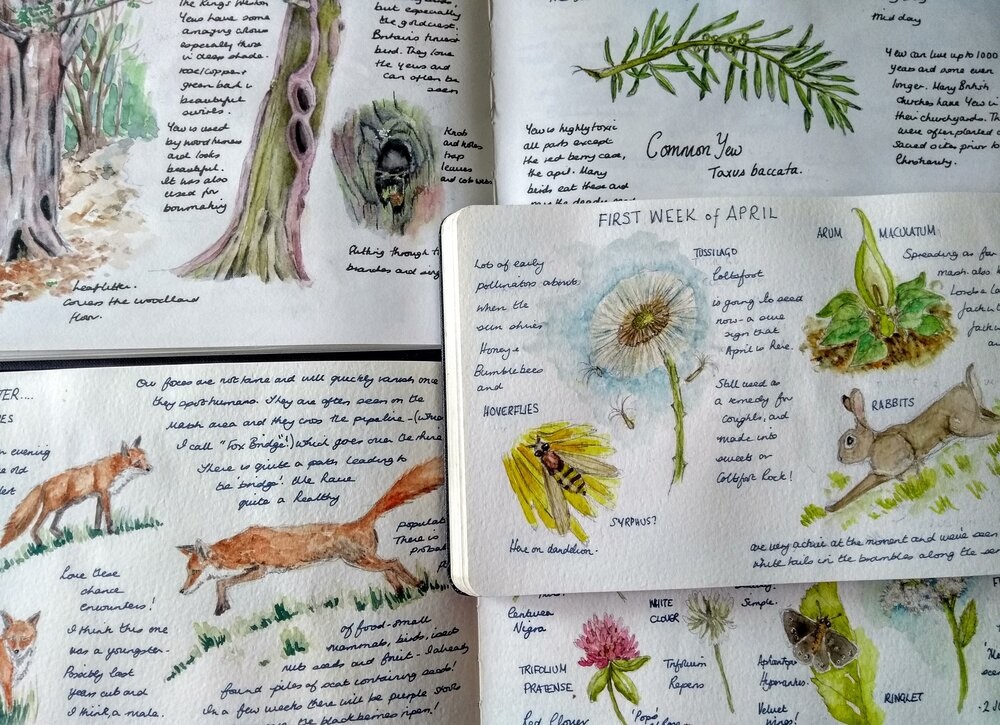 The Kings Weston
Yews have some
amazing colours
especially those
in deep shade.
rose/copper
green bark in
beautiful
swirls.
Yew is used
by woodturners
and looks
beautiful.
It was also
used for
bowmaking
Leaf litter.
Covers the woodland
floor.
but especially
the goldcrest.
Britains tiniest
bird. They love
the Yews and
can often be
seen
Knob
and holes
trap
leaves
and cobwebs
Putting through t
branches and
Mid day
Yew is highly toxic
all parts except
the red berry case,
the aril. Many
birds eat these and
Common Yew
Taxus baccata.
Yew can live up to 1000
years and some even
longer. Many British
churches have Yew in
their churchyards. Th
were often planted
sacred sites prior to
Christianity.
FIRST WEEK of APRIL
Lots of early
pollinators about
when the
sun shines
Honey +
Bumblebees
and
HOVERFLIES
SYRPHUS?
Here on dandelion.
TUSSILAGO
Coltsfoot
is going to seed
now - a sure
sign that
April is here.
Still used as
a remedy for
coughs, and
made into
sweets or
Coltsfoot Rock!
ARUM MACULATUM
Spreading as far
marsh. also
Lords + La
Jack in
Jack
RABBITS
are very active at the moment and we've seen
white tails in the brambles along the
TER....
evening
Our foxes are not tame and will quickly vanish once
they spot humans. They are often seen on the
Marsh area and they cross the pipeline - (which
I call "Fox Bridge"!) which goes over the rhine
There is quite a path leading to
the 'bridge'! We have
quite a healthy
populat
There is
probab
Love these
chance
encounters!
I think this one
was a youngster.
Possibly last
years cub and
I think, a male.
of food - small
mammals, birds, insect
nuts seeds and fruit - I already
found piles of scat containing seeds!
In a few weeks there will be purple stains
the blackberries ripen!
Centurea
Nigra
TRIFOLIUM
PRATENSE
Red Clover
WHITE
CLOVER
Trifolium
Repens
Simple.
Aphantopus
Hyperantus
Velvet
wings!
RINGLET